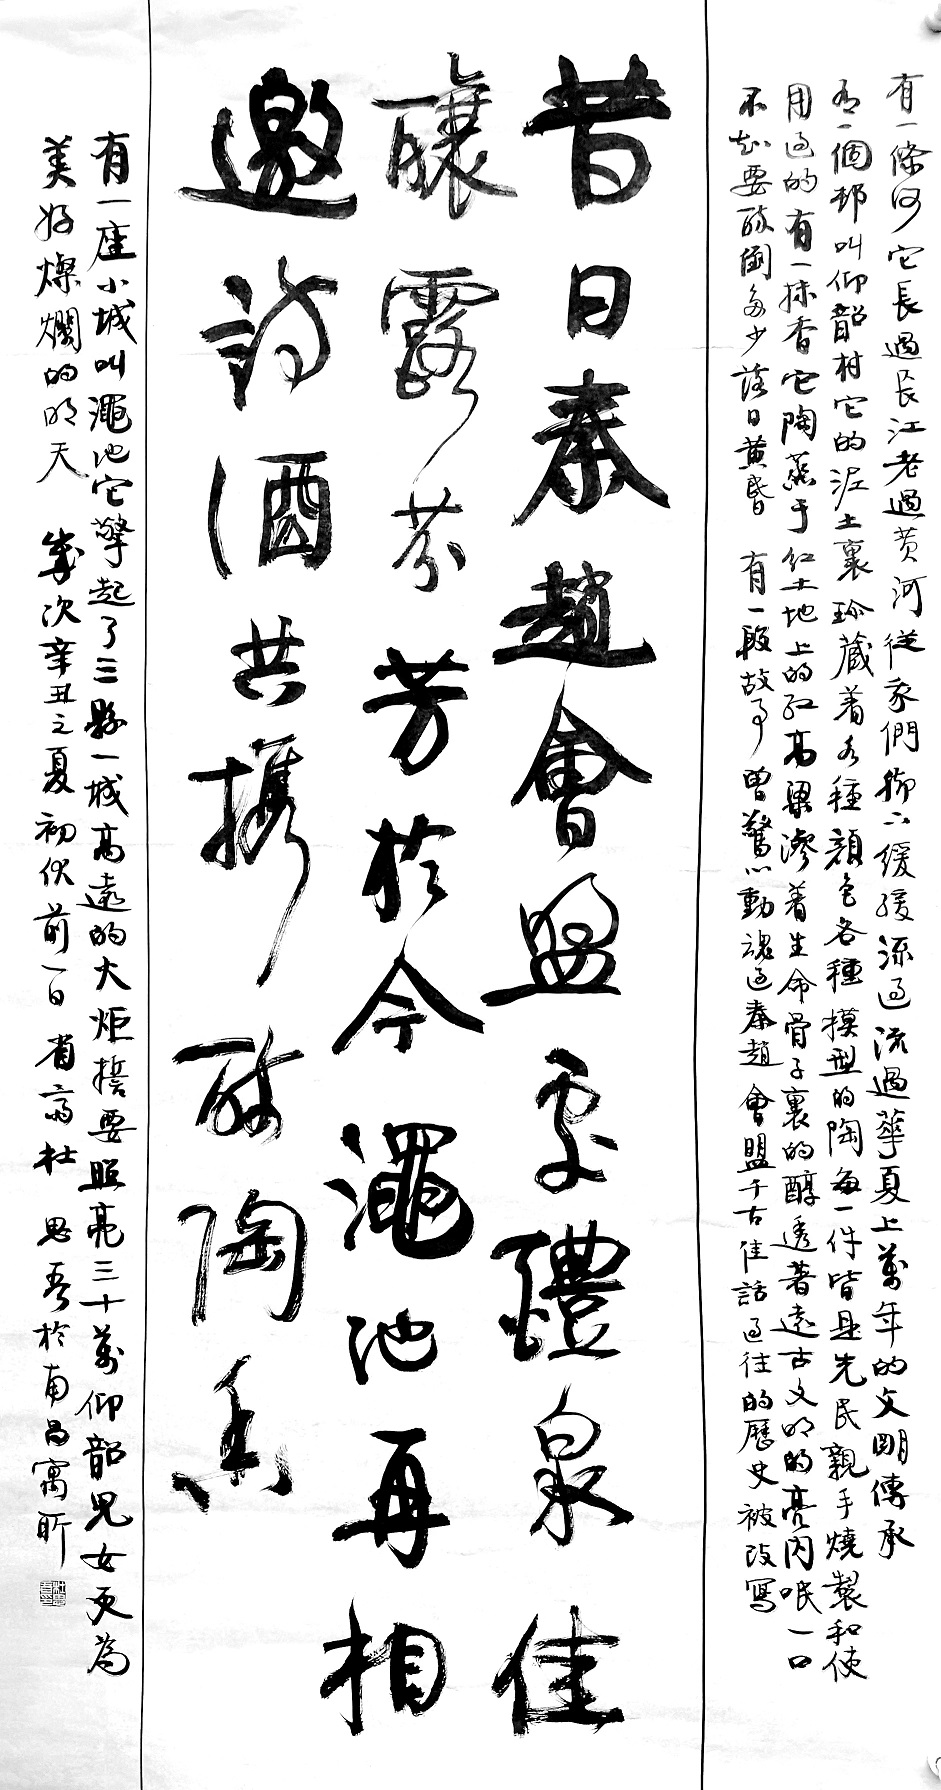 有一條河它長過長江老過黄河從我們腳下緩緩流過流過華夏上萬年的文明傳承
有一個邨叫仰韶村它的泥土裏珍藏着各種顏色各種模型的陶每一件皆是先民親手燒製和使
用過的有一抹香它陶蒸于紅土地上的紅高粱滲着生命骨子裏的醇透著遠古文明的亮闪呡一口
不知要醉倒多少落日黄昏 有一段故事曾驚心動魂過秦趙會盟千古佳話過往的歷史被改寫
昔日秦趙會盟處醴泉佳
釀露芬芳於今澠池再相
邀詩酒共攜醉陶香
有一座小城叫澠池它擎起了三縣一城高遠的大炬誓要照亮三十萬仰韶兒女更為
美好燦爛的明天 歲次辛丑之夏初伏前一日省齋杜思吾於南昌寓所